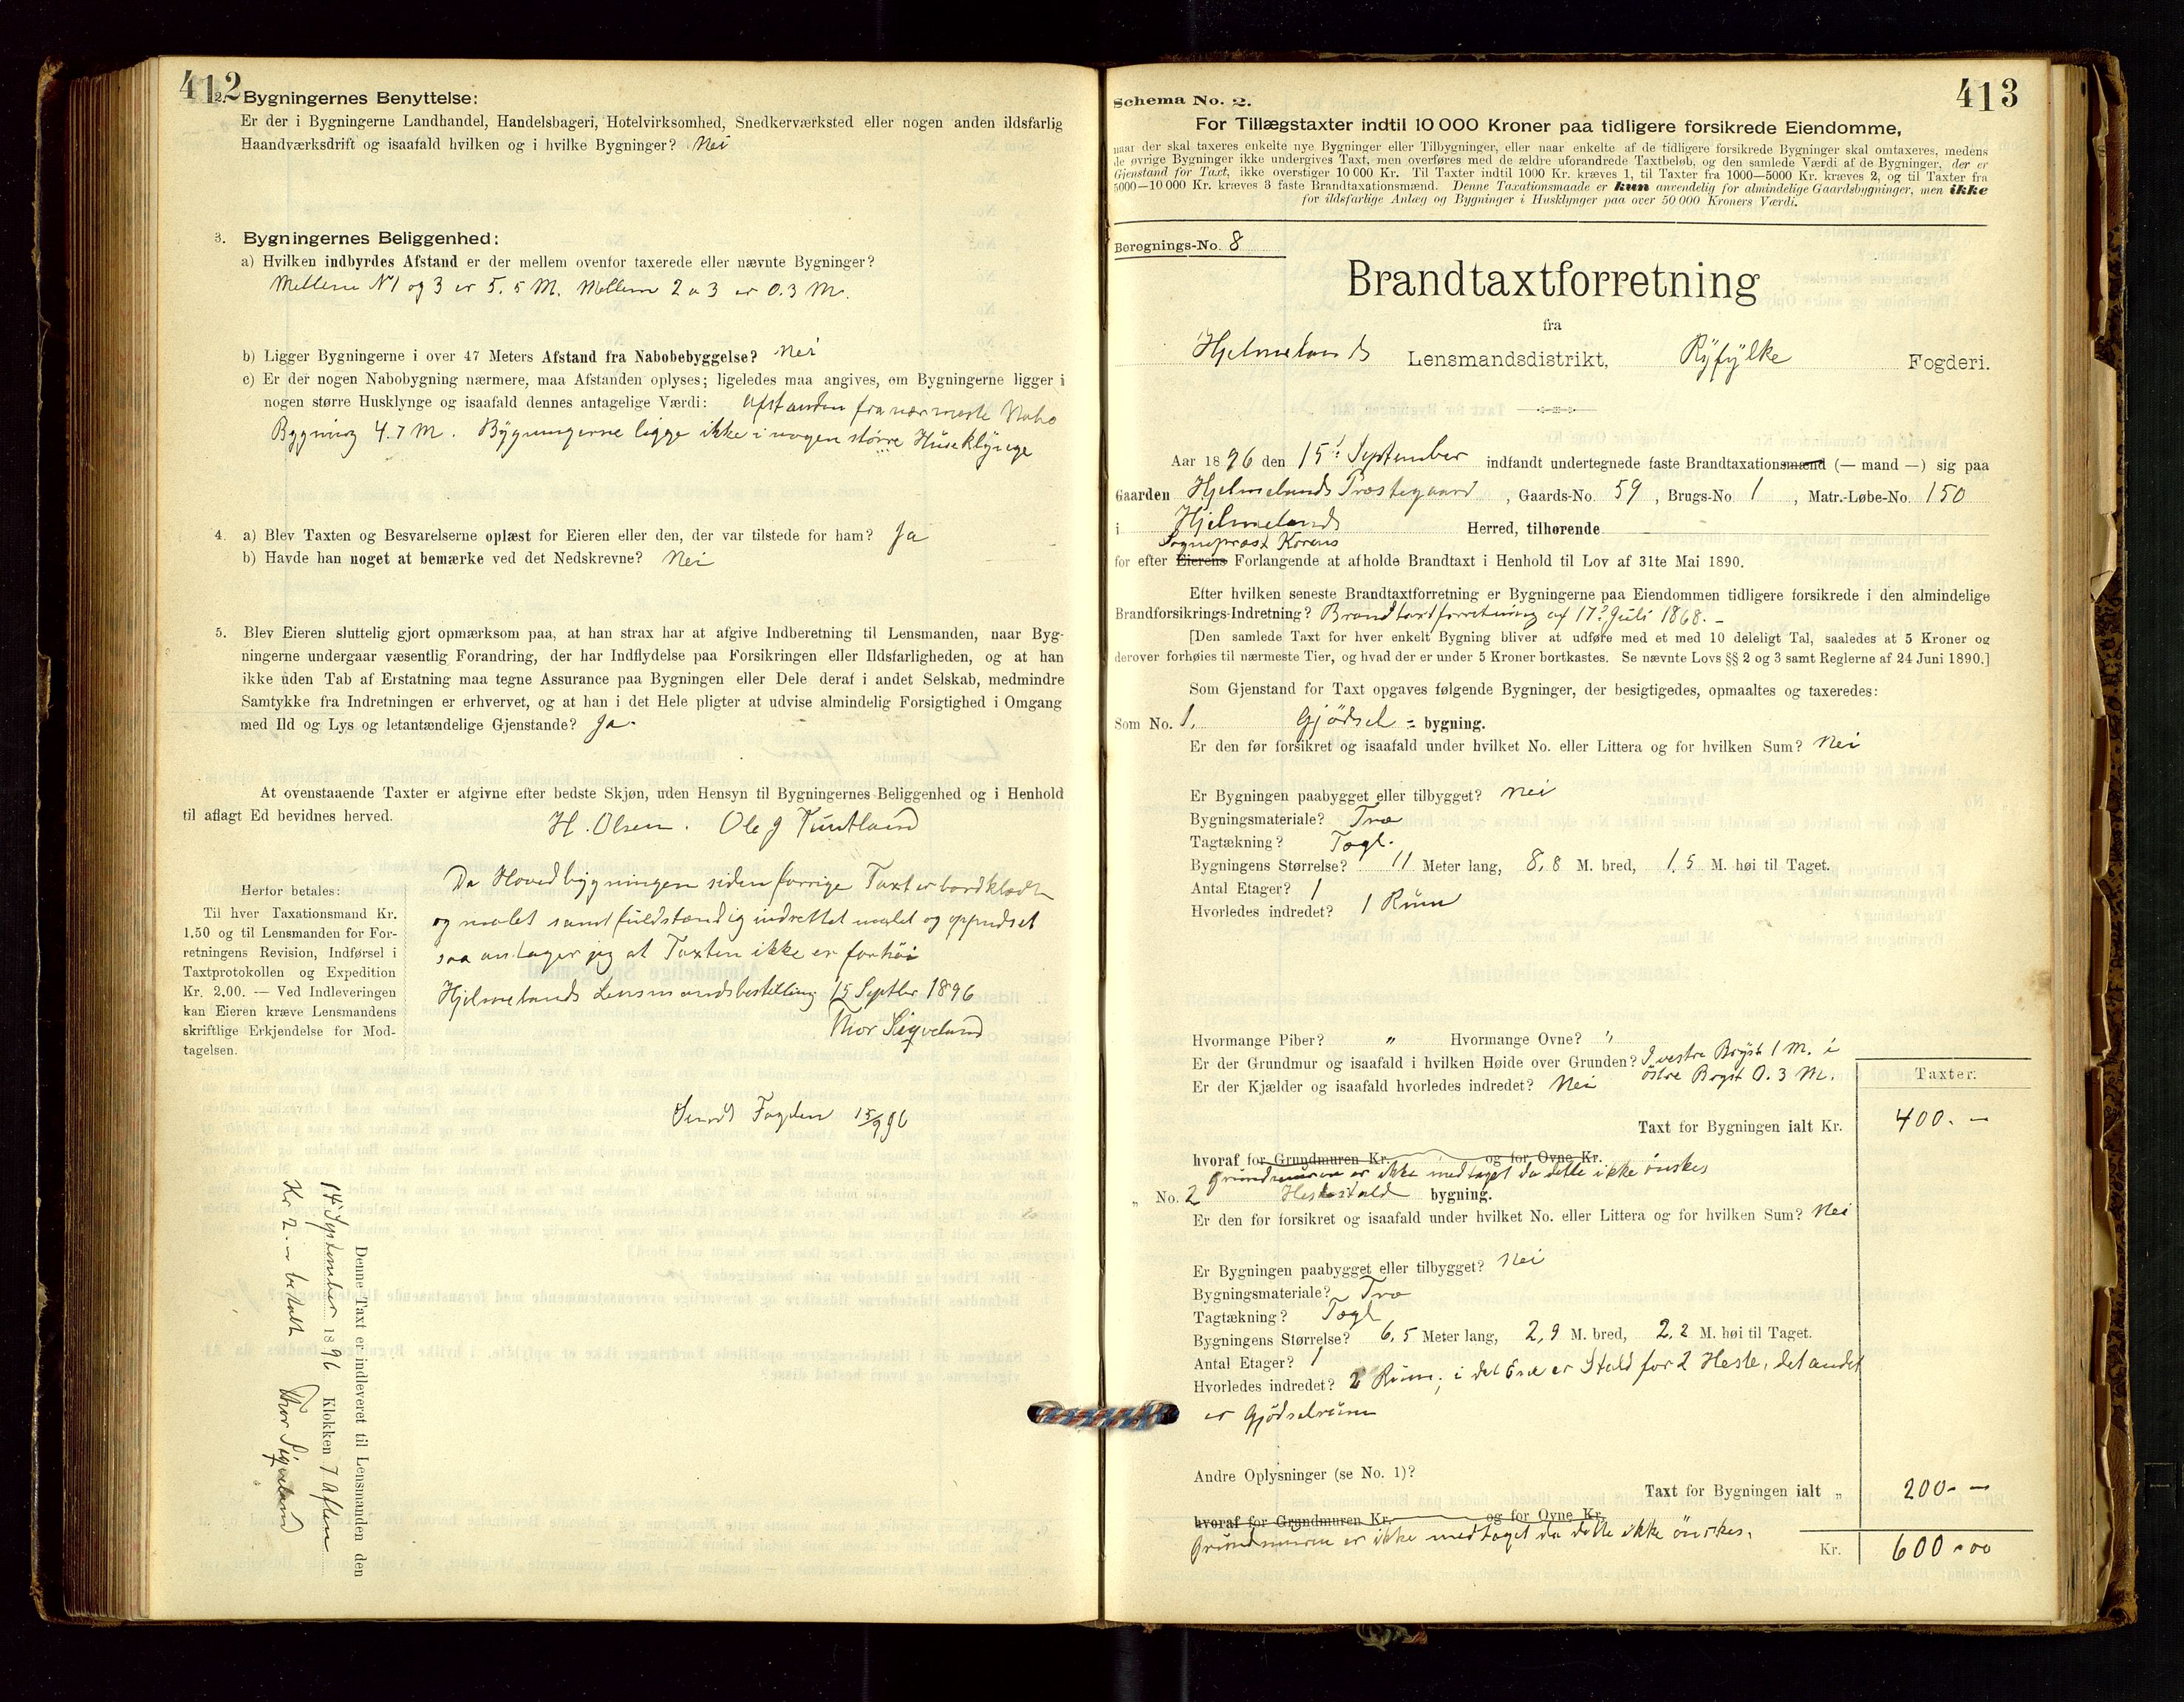 412
2. Bygningernes Benyttelse:
Er der i Bygningerne Landhandel, Handelsbageri, Hotelvirksomhed, Snedkerværksted eller nogen anden ildsfarlig
Haandværksdrift og isaafald hvilken og i hvilke Bygninger? Nei
3. Bygningernes Beliggenhed:
a) Hvilken indbyrdes Afstand er der mellem ovenfor taxerede eller nævnte Bygninger?
Mellem N 1 og 3 er 5.5 M. Mellem 2 o 3 er 0.3 M.
b) Ligger Bygningerne i over 47 Meters Afstand fra Nabobebyggelse? Nei
c) Er der nogen Nabobygning nærmere, maa Afstanden oplyses; ligeledes maa angives, om Bygningerne ligger i
nogen større Husklynge og isaafald dennes antagelige Værdi: Afstanden fra nærmeste Nabo
Bygning 4.7 M. Bygningerne ligge ikke i nogen større Huseklynge
4. a) Blev Taxten og Besvarelserne oplæst for Eieren eller den, der var tilstede for ham? Ja
b) Havde han noget at bemærke ved det Nedskrevne? Nei
5. Blev Eieren sluttelig gjort opmærksom paa, at han strax har at afgive Indberetning til Lensmanden, naar Byg-
ningerne undergaar væsentlig Forandring, der har Indflydelse paa Forsikringen eller Ildsfarligheden, og at han
ikke uden Tab af Erstatning maa tegne Assurance paa Bygningen eller Dele deraf i andet Selskab, medmindre
Samtykke fra Indretningen er erhvervet, og at han i det Hele pligter at udvise almindelig Forsigtighed i Omgang
med Ild og Lys og letantændelige Gjenstande? Ja.
At ovenstaaende Taxter er afgivne efter bedste Skjøn, uden Hensyn til Bygningernes Beliggenhed og i Henhold
til aflagt Ed bevidnes herved.
H. Olsen. Ole J Tuntland
Da Hovedbygningen siden forrige Taxt er bordklædt
og malet samt fuldstændig indrettet malet og oppudset
saa antager jeg at Taxten ikke er for høi
Hjelmelands Lensmandsbestilling 15 Septbr 1896
Thor Sigveland
Herfor betales:
Til hver Taxationsmand Kr.
1.50 og til Lensmanden for For-
retningens Revision, Indførsel i
Taxtprotokollen og Expedition
Kr. 2.00. — Ved Indleveringen
kan Eieren kræve Lensmandens
skriftlige Erkjendelse for Mod-
tagelsen.
Sendt Fogden 15/9 96
Denne Taxt er indleveret til Lensmanden den
14 September 1896 Klokken 7 Aften
Kr 2 - betalt Thor Sigveland
413
Schema No. 2.
For Tillægstaxter indtil 10 000 Kroner paa tidligere forsikrede Eiendomme,
naar der skal taxeres enkelte nye Bygninger eller Tilbygninger, eller naar enkelte af de tidligere forsikrede Bygninger skal omtaxeres, medens
de øvrige Bygninger ikke undergives Taxt, men overføres med de ældre uforandrede Taxtbeløb, og den samlede Værdi af de Bygninger, der er
Gjenstand for Taxt, ikke overstiger 10 000 Kr. Til Taxter indtil 1000 Kr. kræves 1, til Taxter fra 1000—5000 Kr. kræves 2, og til Taxter fra
5000—10 000 Kr. kræves 3 faste Brandtaxationsmænd. Denne Taxationsmaade er kun anvendelig for almindelige Gaardsbygninger, men ikke
for ildsfarlige Anlæg og Bygninger i Husklynger paa over 50 000 Kroners Værdi.
Beregnings-No. 8
Brandtaxtforretning
fra
Hjelmelands Lensmandsdistrikt, Ryfylke Fogderi.
Aar 1896 den 15 September indfandt undertegnede faste Brandtaxationsmænd (— mand —) sig paa
Gaarden Hjelmelands Præstegaard, Gaards-No. 59, Brugs-No. 1, Matr.-Løbe-No. 150
i Hjelmelands Herred, tilhørende
Sognepræst Korens
for efter Eierens Forlangende at afholde Brandtaxt i Henhold til Lov af 31te Mai 1890.
Efter hvilken seneste Brandtaxtforretning er Bygningerne paa Eiendommen tidligere forsikrede i den almindelige
Brandforsikrings-Indretning? Brandtaxtforretning af 17 Juli 1868. -
[Den samlede Taxt for hver enkelt Bygning bliver at udføre med et med 10 deleligt Tal, saaledes at 5 Kroner og
derover forhøies til nærmeste Tier, og hvad der er under 5 Kroner bortkastes. Se nævnte Lovs §§ 2 og 3 samt Reglerne af 24 Juni 1890.]
Som Gjenstand for Taxt opgaves følgende Bygninger, der besigtigedes, opmaaltes og taxeredes:
Som No. 1. Gjødsel = bygning.
Er den før forsikret og isaafald under hvilket No. eller Littera og for hvilken Sum? Nei
Er Bygningen paabygget eller tilbygget? Nei
Bygningsmateriale? Træ
Tagtækning? Tægl.
Bygningens Størrelse? 11 Meter lang, 8,8 M. bred, 1,5 M. høi til Taget.
Antal Etager? 1
Hvorledes indredet? 1 Rum
Hvormange Piber? " Hvormange Ovne? "
Er der Grundmur og isaafald i hvilken Høide over Grunden? I vestre Bryst 1 M. i
østre Bryst 0.3 M.
Er der Kjælder og isaafald hvorledes indredet? Nei
Taxter.
Taxt for Bygningen ialt Kr. 400. -
hvoraf for Grundmuren Kr. og for Ovne Kr.
Grundmuren er ikke medtaget da dette ikke ønskes
" No. 2 Hestestald bygning.
Er den før forsikret og isaafald under hvilket No. eller Littera og for hvilken Sum? Nei
Er Bygningen paabygget eller tilbygget? Nei
Bygningsmateriale? Træ
Tagtækning? Tægl
Bygningens Størrelse? 6,5 Meter lang, 2,9 M. bred, 2,2 M. høi til Taget.
Antal Etager? 1
Hvorledes indredet? 2 Rum; i det Ene er Stald for 2 Heste, det andet
er Gjødselrum
Andre Oplysninger (se No. 1)?
Taxt for Bygningen ialt " 200 - -
hvoraf for Grundmuren Kr. og for Ovne Kr.
Grundmuren er ikke medtaget da dette ikke ønskes.
Kr. 600.00